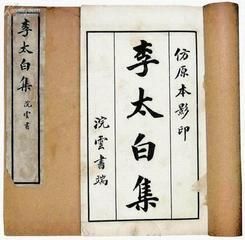 李太白集
浣雲書
仿原本影印
李太白集
浣雲書端